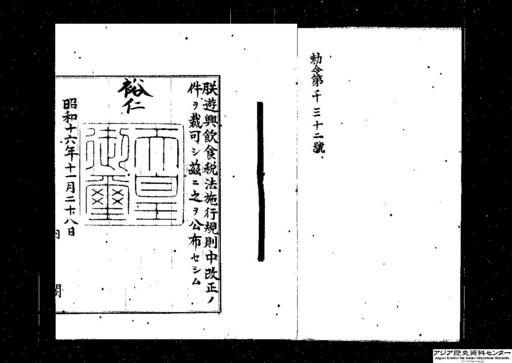 勅令第千三十二號
朕遊興飲食税法施行規則中改正ノ
件ヲ裁可シ茲ニ之ヲ公布セシム
裕仁
天皇
御璽
昭和十六年十一月二十八日
内閣
アジア歴史資料センター
Japan Center for Asian Historical Records